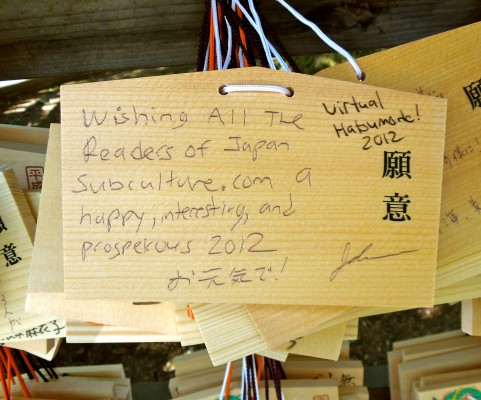 Wishing All The
Readers of Japan
Subculture.com a
happy, interesting, and
prosperous 2012
お元気で!
Virtual
Hatsumode!
2012
願意
願
願意
平成